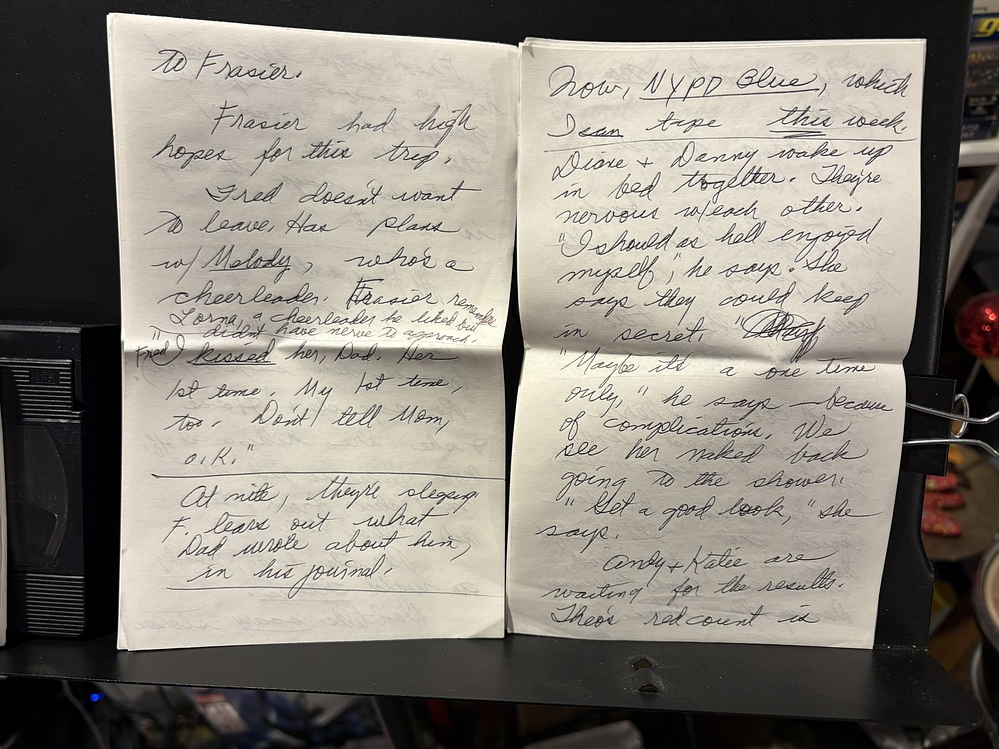 to Frasier.
Frasier had high
hopes for this trip.
Fred doesn't want
to leave. Has plans
w/ Melody, who's a
cheerleader. Frasier remembers
Lorna, a cheerleader he liked but
didn't have nerve to approach.
Fred) "I kissed her, Dad. Her
1st time. My 1st time,
too. Don't tell Mom,
O.K."
At nite, they're sleeping
F. tears out what
Dad wrote about him,
in his journal.
Now, NYPD Blue, which
I can tape this week.
Diane + Danny wake up
in bed together. They're
nervous w/each other.
"I should as hell enjoyed
myself," he says. She
says they could keep
in secret. "
"Maybe it's a one time
only," he says — because
of complications. We
see her naked back
going to the shower.
"Get a good look," she
says.
Andy + Katie are
waiting for the results.
Theo's red count is